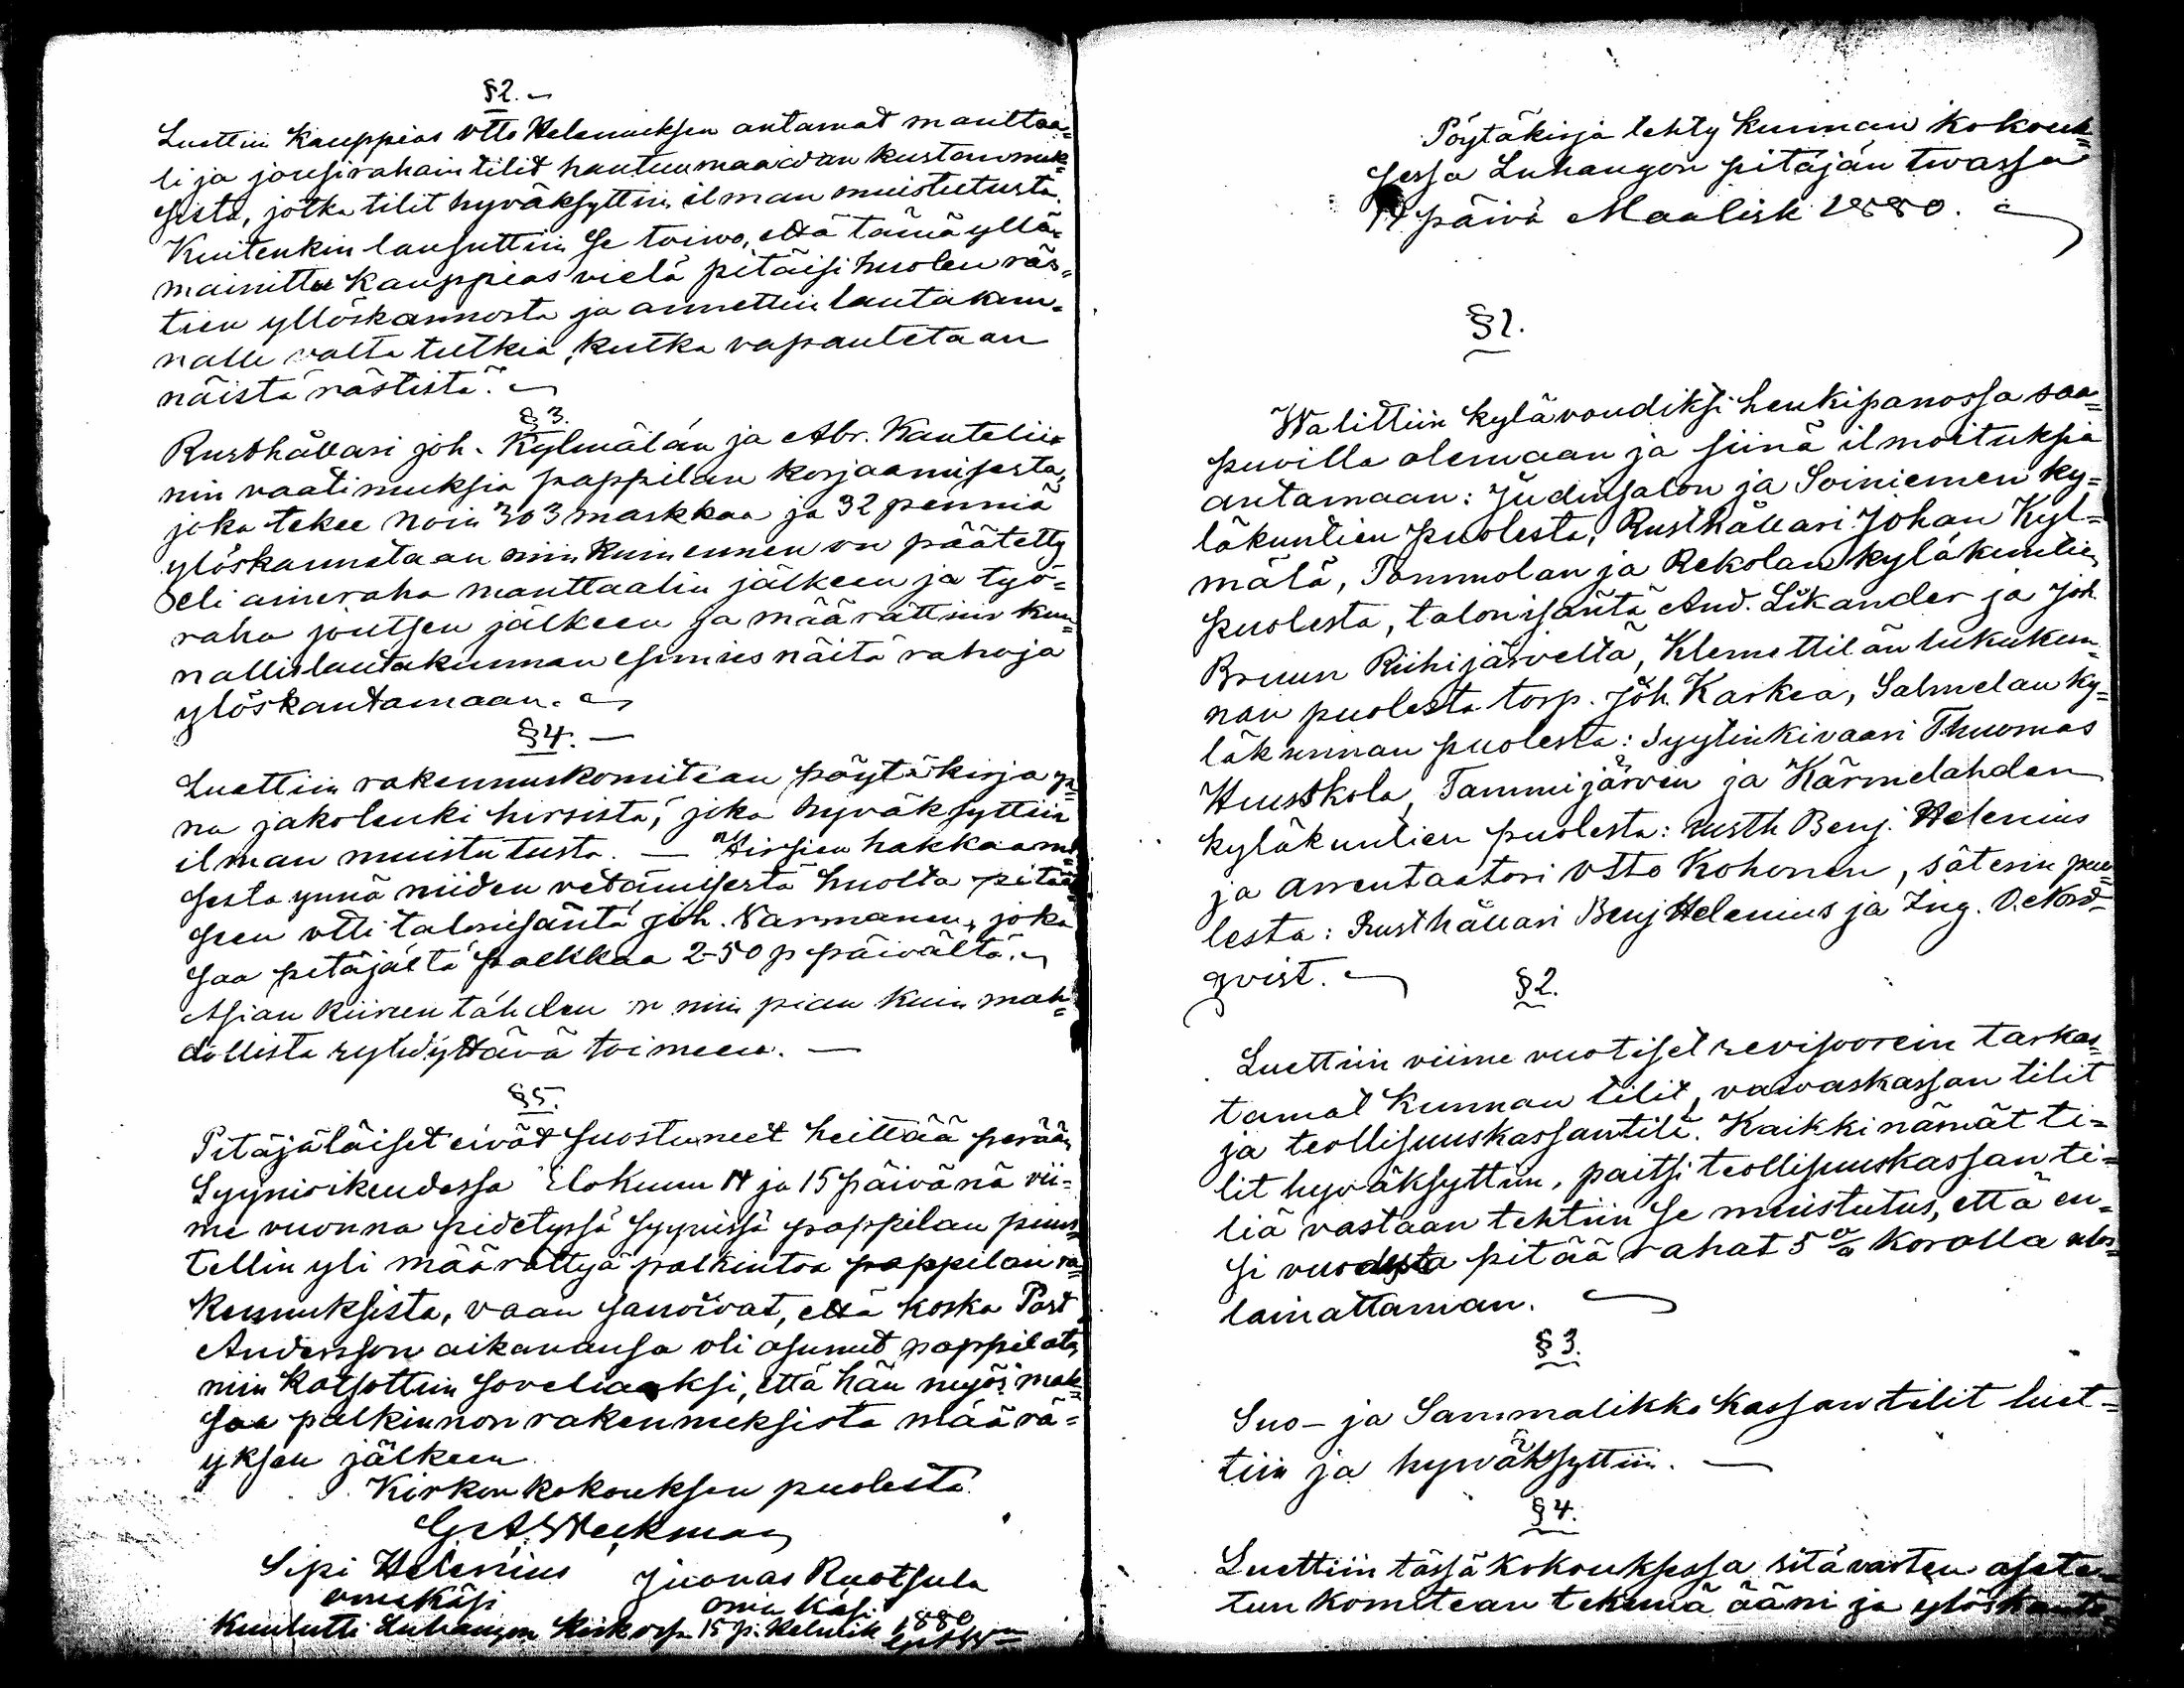 §2.
Luettiin Kauppias Otto Heleniuksen antamat manttaa=
li ja jousirahain tilit hautuumaaidan kustannuk=
sista, jotka tilit hyväksyttiin ilman muistutusta.
Kuitenkin lausuttiin se toiwo, että tämä yllä=
mainittu Kauppias vielä pitäisi huolen räs=
tien yllöskannosta ja annettiin lautakun=
nalle valta tutkia, kutka vapautetaan
näistä rästistä.
§3.
Rusthållari Joh. Kylmälän ja Abr. Kautelii=
nin vaatimuksia pappilan korjaamisesta,
joka tekee noin 303 markkaa ja 32 penniä
ylöskannetaan niin kuin ennen on päätetty
eli aineraha manttaalin jälkeen ja työ=
raha joutsen jälkeen ja määrättiin kun=
nallislautakunnan esimies näitä rahoja
ylöskantamaan.
§4.
Luettiin rakennuskomitean pöytäkirja yn=
nä jakolenki hirsistä, joka hyväksyttiin
ilman muistutusta. — Hirsien hakkaami=
sesta ynnä niiden vetämisestä huolta pitää=
seen otti talonisäntä Joh. Narmanen, joka
saa pitäjältä palkkaa 2-50 p päivältä.
Asian kiireen tähden on niin pian kuin mah=
dollista ryhdyttävä toimeen. —
§5.
Pitäjäläiset eivät suostuneet heittää perään
Syynioikeudessa Elokuun 14 ja 15 päivänä vii=
me vuonna pidetyssä syynissä pappilan puus=
tellin yli määrättyä palkintoa pappilan ra=
kennuksista, vaan sanoivat, että koska Past
Andersson aikanansa oli asunut pappilata,
niin katsottiin soveliaaksi, että hän myös mak=
saa palkinnon rakennuksista määrä=
yksen jälkeen
Kirkon kokouksen puolesta
G. A. Weckman
Sipi Helenius Juonas Ruotsula
omakäsi oma käsi
Kuulutti Luhangon kirkossa 15 p. Helmik 1880
Pöytäkirja tehty kunnan kokouk=
sessa Luhangon pitäjän tuvassa
14 päivä Maalisk 1880.
§1.
Walittiin kylävoudiksi henkipanossa saa=
puvilla olemaan ja siinä ilmoituksia
antamaan: Judinsalon ja Soiniemen ky=
läkuntien puolesta, Rusthållari Johan Kyl=
mälä, Tommolan ja Rekolan kyläkuntien
puolesta, talonisäntä And. Likander ja Joh.
Bruun Riihijärveltä, Klemettilän lukukun=
nan puolesta torp. Joh. Karkea, Salmelan ky=
läkunnan puolesta: Syytinkivaari Thuomas
Huuskola, Tammijärven ja Kärmelahden
kyläkuntien puolesta: rusth Benj. Helenius
ja arrentaatori Otto Kohonen, säterin puo=
lesta: Rusthållari Benj Helenius ja Ing. O. Nord=
qvist.
§2.
Luettiin viime vuotiset revisoorein tarkas=
tamat kunnan tilit, vaivaskassan tilit
ja teollisuuskassantili. Kaikki nämät ti=
lit hyväksyttiin, paitsi teollisuuskassan ti=
liä vastaan tehtiin se muistutus, että en=
si vuodesta pitää rahat 5 % korolla ulos=
lainattaman.
§3.
Suo- ja Sammalikko kassan tilit luet=
tiin ja hyväksyttiin. —
§4.
Luettiin tässä kokouksessa sitävarten asete=
tun komitean tekemä ääni ja ylöskanto